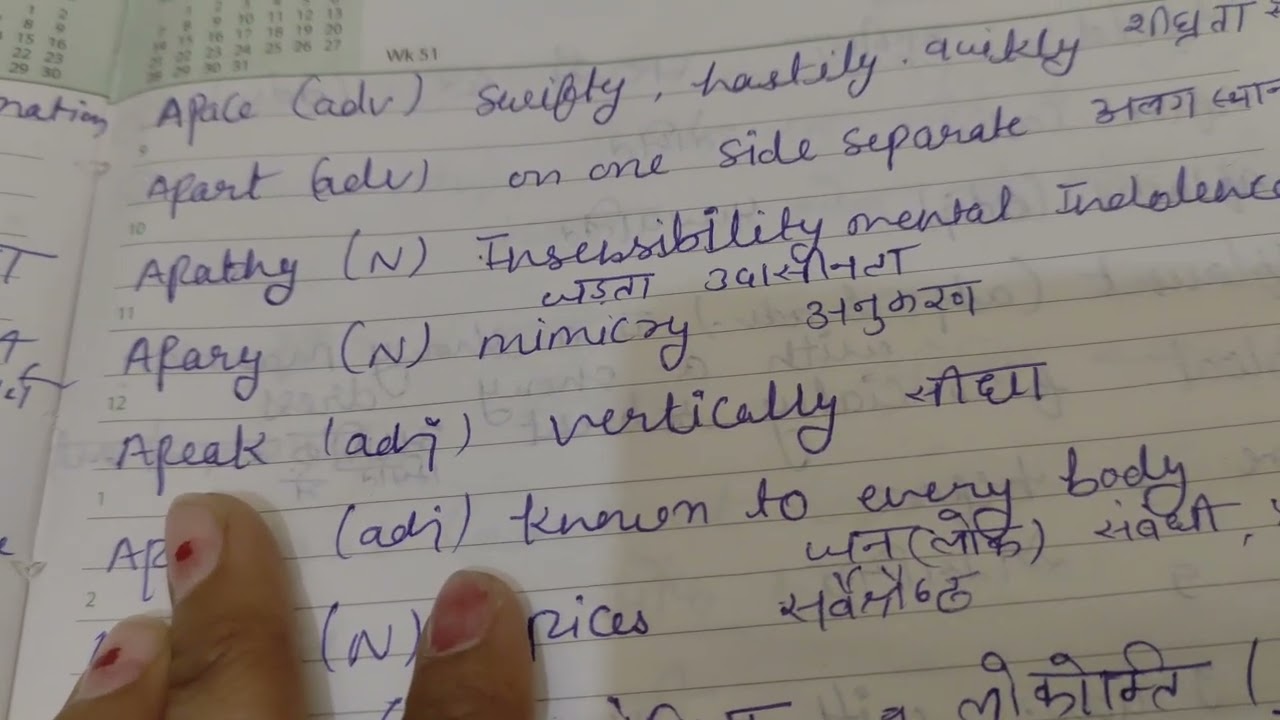 1 2 1 2 3 4 5 6
8 9 7 8 9 10 11 12 13
15 16 14 15 16 17 18 19 20
22 23 21 22 23 24 25 26 27
29 30 28 29 30 31
Wk 51
nation
Apace (adv) Swiftly, hastily. quikly शीघ्रता से
9
Apart (adv) on one side separate अलग
10
Apathy (N) Insensibility mental Indolence
जड़ता उदासीनता
11
Apary (N) mimicry अनुकरण
12
Apeak (adj) vertically सीधा
1
(adj) known to every body
जन (लोक) संबंधी,
2
(N) pices सर्वश्रेष्ठ